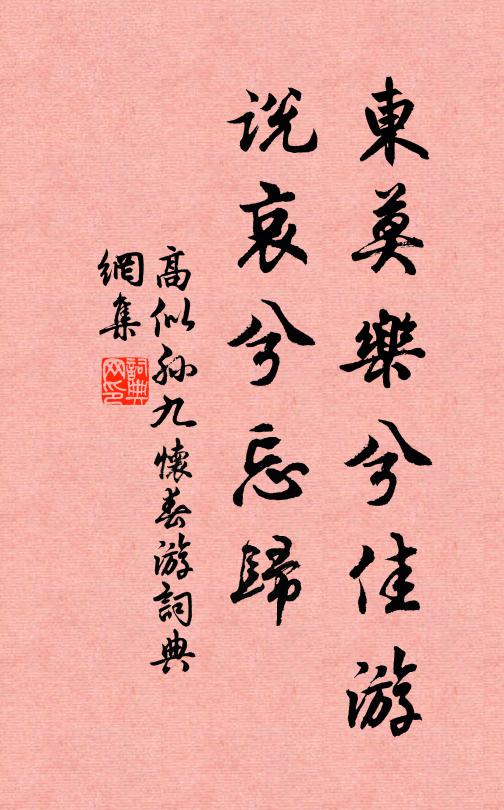 東莫樂兮佳游
说哀兮忘歸
高似孫九懷春游詞典
網集
詞典
网印